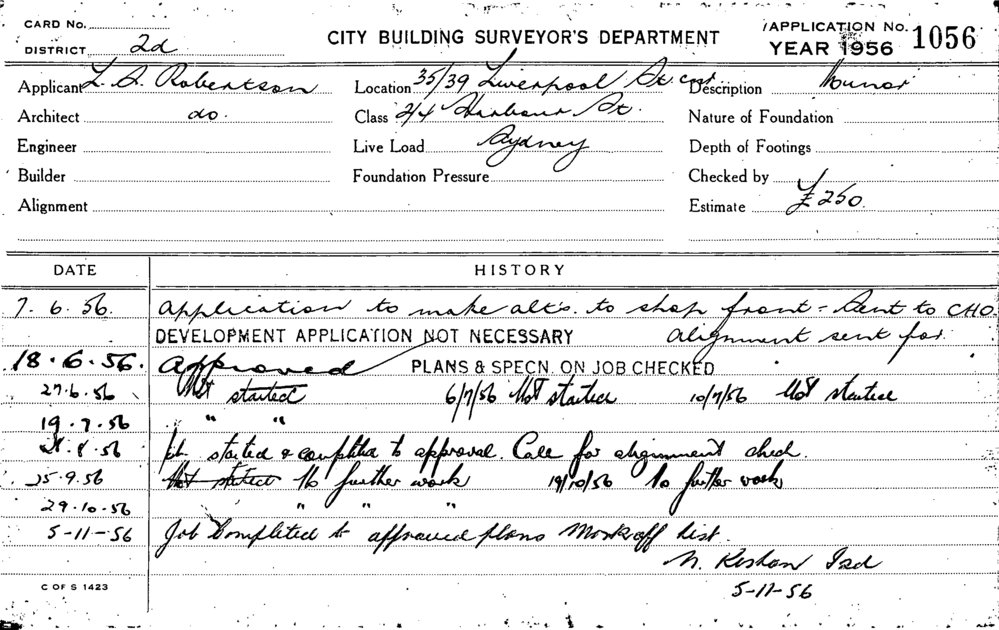 CARD No.
DISTRICT 2d
CITY BUILDING SURVEYOR'S DEPARTMENT
APPLICATION No. 1056
YEAR 1956
Applicant L. A. Robertson
Location 35/39 Liverpool St cor
Description Minor
Architect do.
Class 2/4 Harbour St.
Nature of Foundation
Engineer
Live Load Sydney
Depth of Footings
Builder
Foundation Pressure
Checked by
Alignment
Estimate £250.
DATE HISTORY
7. 6. 56. Application to make alts. to shop front - Sent to CHO.
DEVELOPMENT APPLICATION NOT NECESSARY Alignment sent for
18.6.56. Approved PLANS & SPECN. ON JOB CHECKED
27.6.56 Not started 6/7/56 Not started 10/7/56 Not started
19.7.56 " "
28.8.56 started & completed to approval. Call for alignment check.
25.9.56 Not started No further work 19/10/56 No further work
29.10.56 " " "
5-11-56 Job Completed to approved plans Mark off list.
5-11-56
C OF S 1423